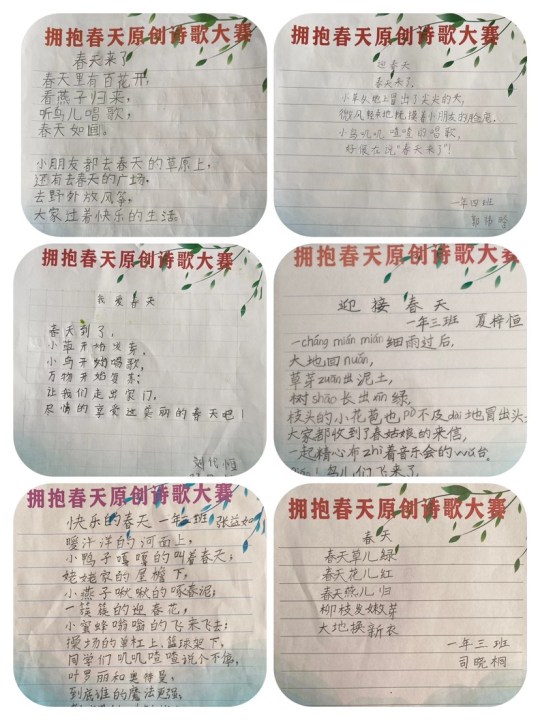 拥抱春天原创诗歌大赛
春天来了
春天里有百花开，
看燕子归来，
听鸟儿唱歌，
春天如画。
小朋友都去春天的草原上，
还有去春天的广场。
去野外放风筝，
大家过着快乐的生活。
拥抱春天原创诗歌大赛
迎春天
春天来了，
小草从地上冒出了尖尖的头，
微风轻轻地抚摸着小朋友的脸庞，
小鸟叽叽喳喳的唱歌，
好像在说“春天来了”！
一年四班
拥抱春天原创诗歌大赛
我爱春天
春天到了，
小草开始发芽，
小鸟开始唱歌，
万物开始复苏；
让我们走出家门，
尽情的享受这美丽的春天吧！
拥抱春天原创诗歌大赛
迎接春天
一年三班 夏梓恒
一cháng mián mián细雨过后，
大地回nuǎn，
草芽zuān出泥土，
树shāo长出丽绿，
枝头的小花苞也pò不及dài地冒出头
大家都收到了春姑娘的来信，
一起精心布zhì着音乐会的wǔ台。
鸟儿们飞来了
拥抱春天原创诗歌大赛
快乐的春天 一年三班 张益如
暖洋洋的河面上，
小鸭子嘎嘎的叫着春天；
姥姥家的屋檐下，
小燕子啾啾的啄春泥；
一簇簇的迎春花，
小蜜蜂嗡嗡的飞来飞去；
操场的单杠上，篮球架下，
同学们叽叽喳喳说个不停，
叶罗丽和奥特曼，
到底谁的魔法更强；
拥抱春天原创诗歌大赛
春天
春天草儿绿
春天花儿红
春天燕儿归
柳枝发嫩芽
大地换新衣
一年三班
司晓桐